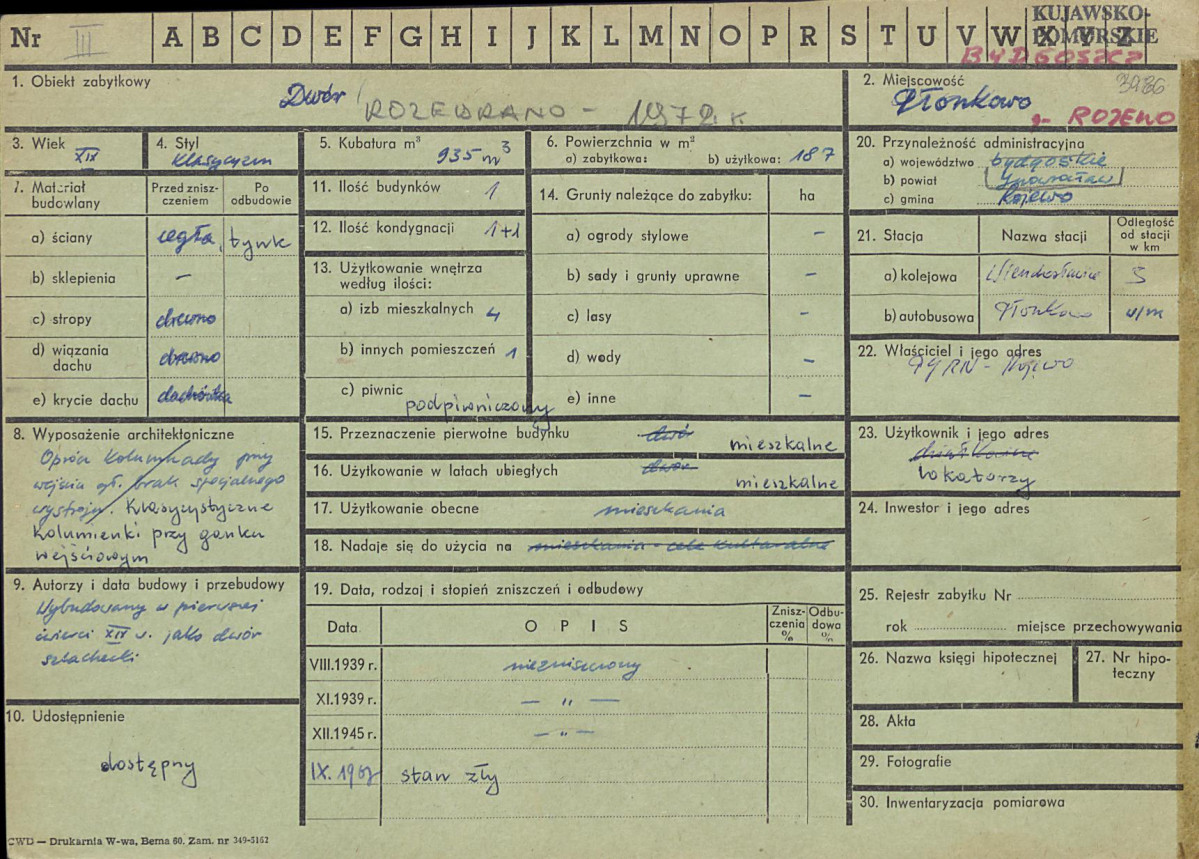 Nr III A B C D E F G H I J K L M N O P R S T U V W X Y Z
KUJAWSKO-
POMORSKIE
BYDGOSZCZ
1. Obiekt zabytkowy
Dwór
ROZEBRANO - 1972 R
2. Miejscowość
3986
Płonkowo
g- ROJEWO
3. Wiek
XIX
4. Styl
klasycyzm
5. Kubatura m³
935 m³
6. Powierzchnia w m²
a) zabytkowa: b) użytkowa: 187
7. Materiał budowlany
Przed zniszczeniem
Po odbudowie
a) ściany cegła, tynk
b) sklepienia –
c) stropy drewno
d) wiązania dachu drewno
e) krycie dachu dachówka
8. Wyposażenie architektoniczne
Oprócz kolumnady przy
wejściu gł. brak specjalnego
wystroju. Klasycystyczne
kolumienki przy ganku
wejściowym
9. Autorzy i data budowy i przebudowy
Wybudowany w pierwszej
ćwierci XIX w. jako dwór
szlachecki
10. Udostępnienie
dostępny
11. Ilość budynków 1
12. Ilość kondygnacji 1+1
13. Użytkowanie wnętrza
według ilości:
a) izb mieszkalnych 4
b) innych pomieszczeń 1
c) piwnic
podpiwniczony
14. Grunty należące do zabytku: ha
a) ogrody stylowe –
b) sady i grunty uprawne –
c) lasy –
d) wody –
e) inne –
15. Przeznaczenie pierwotne budynku dwór
mieszkalne
16. Użytkowanie w latach ubiegłych dwór
mieszkalne
17. Użytkowanie obecne mieszkania
18. Nadaje się do użycia na mieszkania - cele kulturalne
19. Data, rodzaj i stopień zniszczeń i odbudowy
Data O P I S Zniszczenia % Odbudowa %
VIII.1939 r. niezniszczony
XI.1939 r. — „ —
XII.1945 r. — „ —
IX. 1967 stan zły
20. Przynależność administracyjna
a) województwo bydgoskie
b) powiat Inowrocław
c) gmina Rojewo
21. Stacja
Nazwa stacji
Odległość od stacji w km
a) kolejowa Wierzchosławice 3
b) autobusowa Płonkowo w/m
22. Właściciel i jego adres
PGRN - Rojewo
23. Użytkownik i jego adres
lokatorzy
24. Inwestor i jego adres
25. Rejestr zabytku Nr
rok miejsce przechowywania
26. Nazwa księgi hipotecznej
27. Nr hipoteczny
28. Akta
29. Fotografie
30. Inwentaryzacja pomiarowa
CWD — Drukarnia W-wa, Bema 60. Zam. nr 349-5162